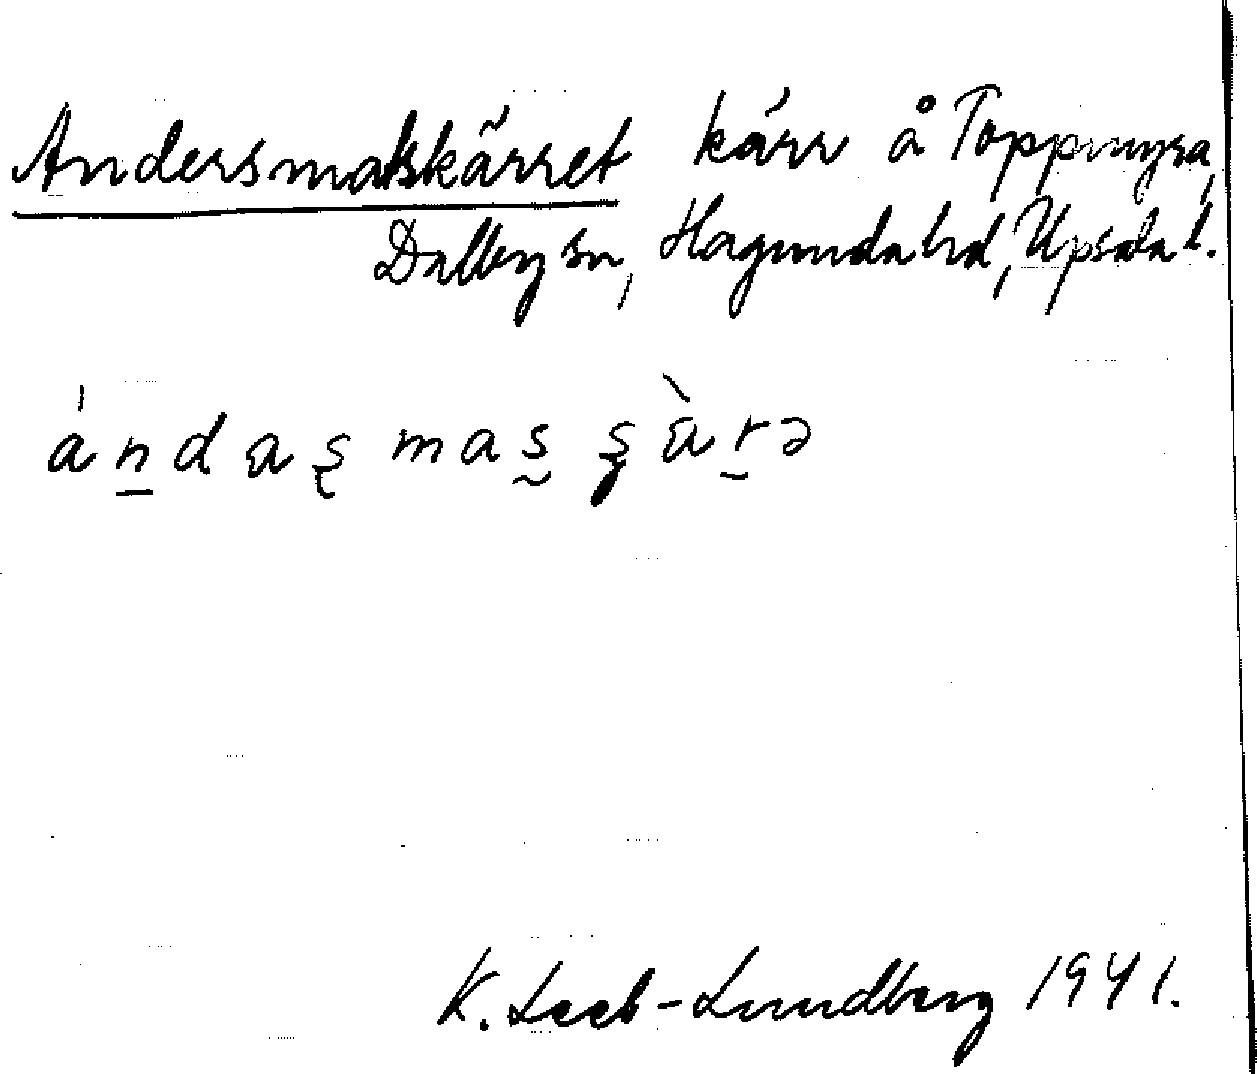 Andersmatskärret kärr å Toppmyra,
Dalby sn, Hagunda hd, Upsala l.
ándaş mas şàrə
K. Leeb-Lundberg 1941.